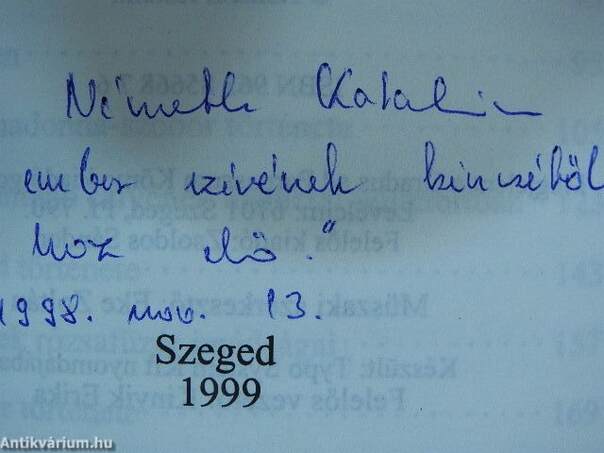 Németh Katalin
ember szívének kincséből
hoz elő."
1998. nov. 13.
Szeged
1999
Antikvárium.hu